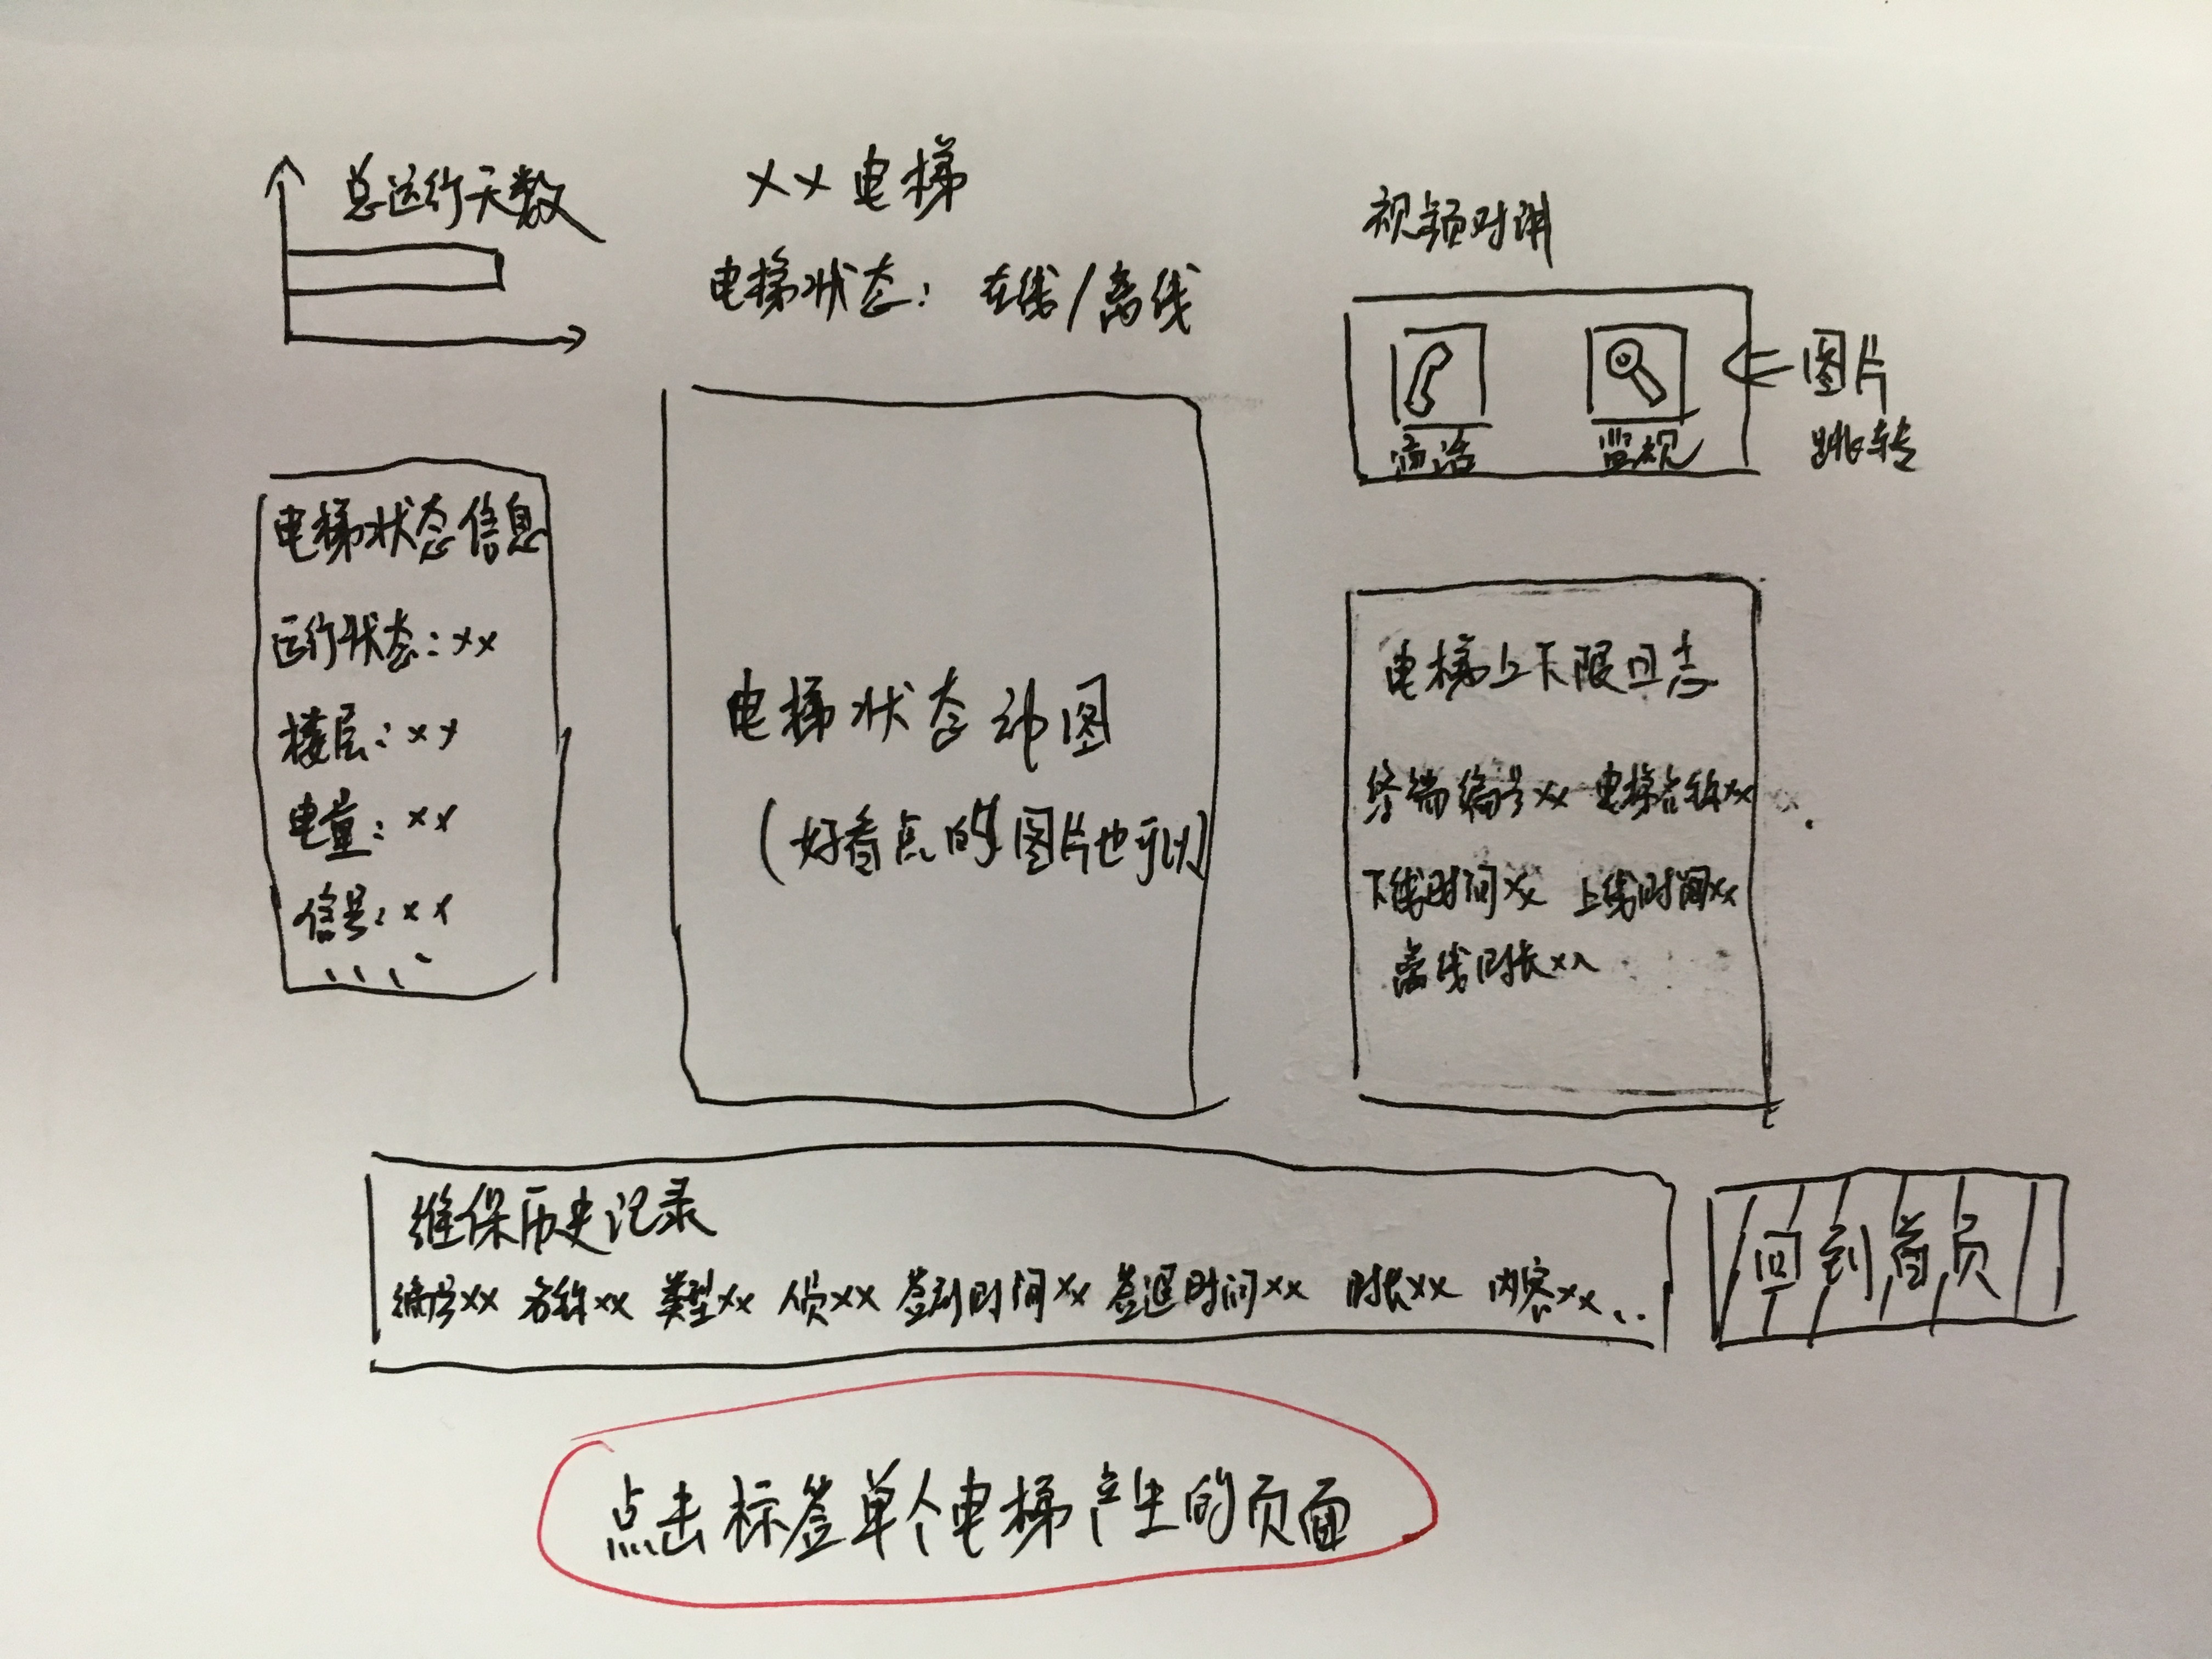 总运行天数
××电梯
电梯状态：在线/离线
视频对讲
通话
监视
图片
跳转
电梯状态信息
运行状态：××
楼层：××
电量：××
信号：××
....
电梯状态动图
(好看点的图片也可以)
电梯上下限日志
终端编号×× 电梯名称××...
下线时间×× 上线时间××
离线时长××
维保历史记录
编号×× 名称×× 类型×× 人员×× 签到时间×× 签退时间×× 时长×× 内容××...
回到首页
点击标签单个电梯产生的页面